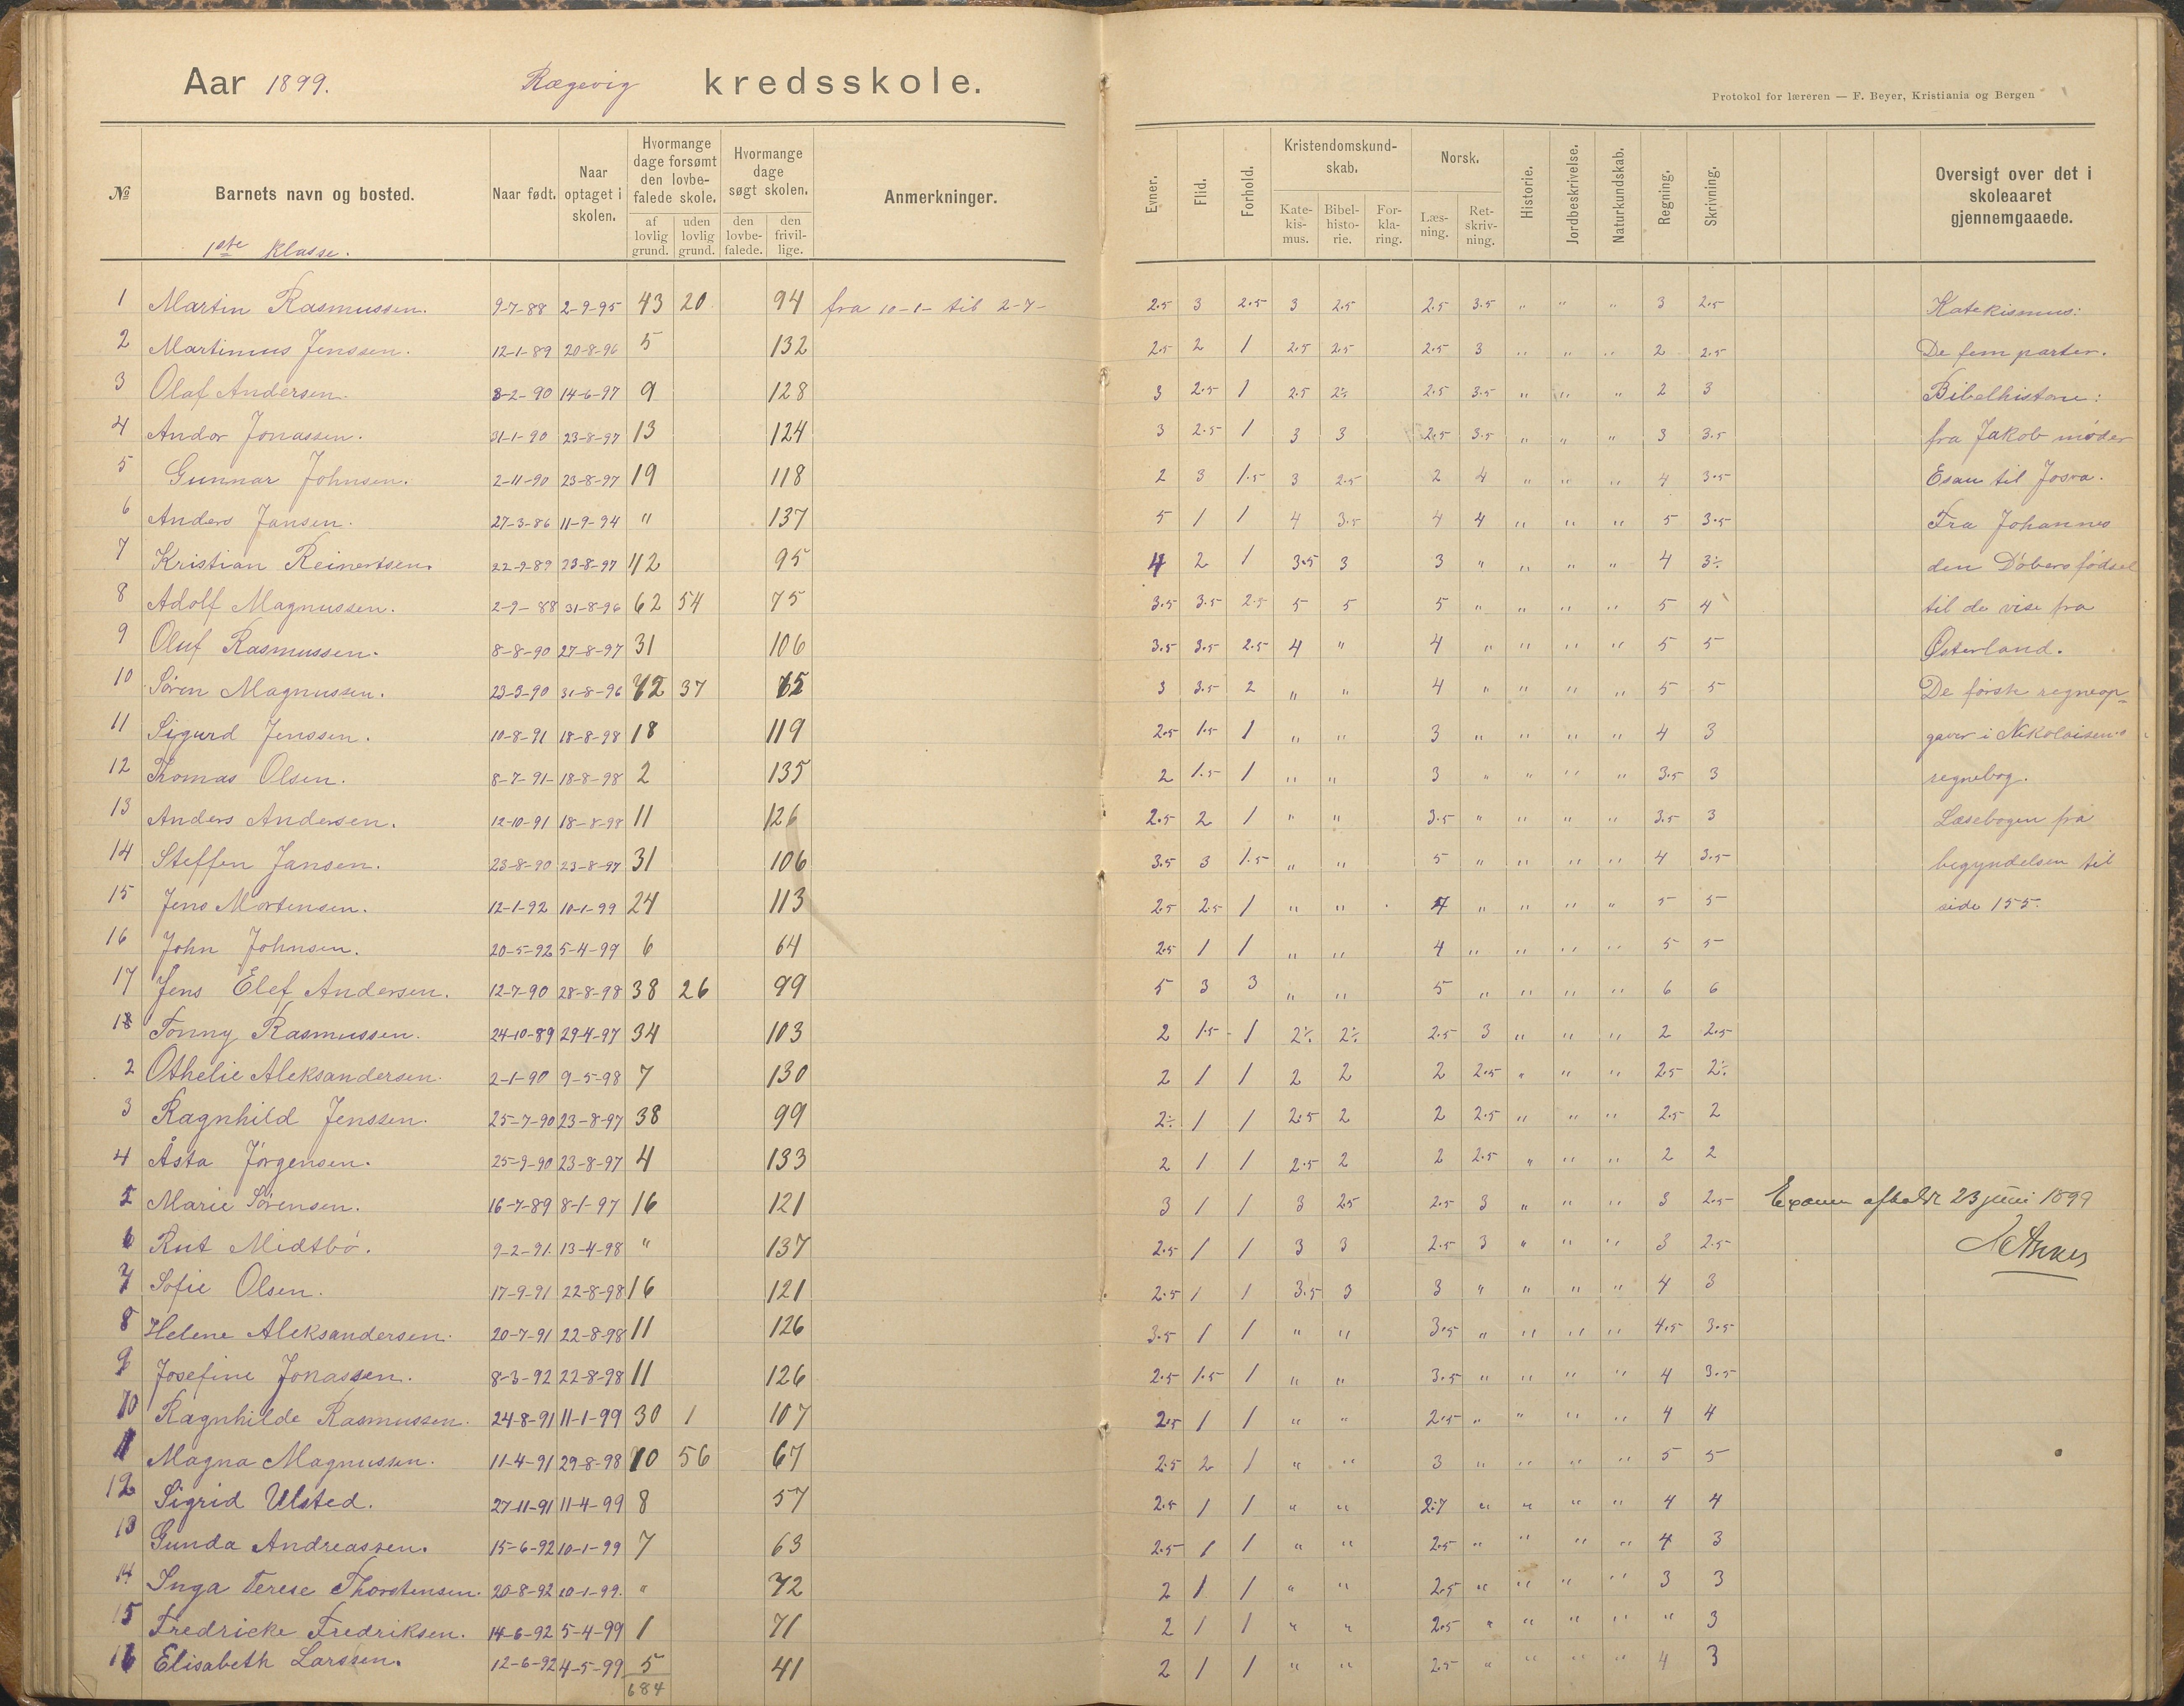 Aar 1899. Rægevig kredsskole.
Protokol for læreren — F. Beyer, Kristiania og Bergen
№ Barnets navn og bosted. Naar født. Naar optaget i skolen. Hvormange dage forsømt den lovbefalede skole. af lovlig grund. uden lovlig grund. Hvormange dage søgt skolen. den lovbefalede. den frivillige. Anmerkninger. Evner. Flid. Forhold. Kristendomskundskab. Katekismus. Bibelhistorie. Forklaring. Norsk. Læsning. Retskrivning. Historie. Jordbeskrivelse. Naturkundskab. Regning. Skrivning. Oversigt over det i skoleaaret gjennemgaaede.
1ste Klasse.
1 Martin Rasmussen. 9-7-88 2-9-95 43 20 94 fra 10-1- til 2-7- 2.5 3 2.5 3 2.5 2.5 3.5 " " " 3 2.5 Katekismus:
2 Martinius Jenssen. 12-1-89 20-8-96 5 132 2.5 2 1 2.5 2.5 2.5 3 " " " 2 2.5 De fem parter.
3 Olaf Andersen. 8-2-90 14-6-97 9 128 3 2.5 1 2.5 2÷ 2.5 3.5 " " " 2 3 Bibelhistorie:
4 Andor Jonassen. 31-1-90 23-8-97 13 124 3 2.5 1 3 3 2.5 3.5 " " " 3 3.5 fra Jakob møder
5 Gunnar Johnsen. 2-11-90 23-8-97 19 118 2 3 1.5 3 2.5 2 4 " " " 4 3.5 Esau til Josva.
6 Anders Jansen. 27-3-86 11-9-94 " 137 5 1 1 4 3.5 4 4 " " " 5 3.5 Fra Johannes
7 Kristian Reinertsen. 22-9-89 23-8-97 42 95 4 2 1 3.5 3 3 " " " " 4 3÷ den Døbers fødsel
8 Adolf Magnussen. 2-9-88 31-8-96 62 54 75 3.5 3.5 2.5 5 5 5 " " " " 5 4 til de vise fra
9 Oluf Rasmussen. 8-8-90 27-8-97 31 106 3.5 3.5 2.5 4 " 4 " " " " 5 5 Østerland.
10 Søren Magnussen. 23-3-90 31-8-96 72 37 65 3 3.5 2 " " 4 " " " " 5 5 De første regneop-
11 Sigurd Jenssen. 10-8-91 18-8-98 18 119 2.5 1.5 1 " " 3 " " " " 4 3 gaver i Nikolaisens
12 Thomas Olsen. 8-7-91- 18-8-98 2 135 2 1.5 1 " " 3 " " " " 3.5 3 regnebog.
13 Anders Andersen. 12-10-91 18-8-98 11 126 2.5 2 1 " " 3.5 " " " " 3.5 3 Læsebogen fra
14 Steffen Jansen. 23-8-90 23-8-97 31 106 3.5 3 1.5 " " 5 " " " " 4 3.5 begyndelsen til
15 Jens Mortensen. 12-1-92 10-1-99 24 113 2.5 2.5 1 " " 4 " " " " 5 5 side 155.
16 John Johnsen. 20-5-92 5-4-99 6 64 2.5 1 1 " " 4 " " " " 5 5
17 Jens Elef Andersen. 12-7-90 28-8-98 38 26 99 5 3 3 " " 5 " " " " 6 6
1 Tonny Rasmussen. 24-10-89 29-4-97 34 103 2 1.5 1 2÷ 2÷ 2.5 3 " " " 2 2.5
2 Othelie Aleksandersen. 2-1-90 9-5-98 7 130 2 1 1 2 2 2 2.5 " " " 2.5 2÷
3 Ragnhild Jenssen. 25-7-90 23-8-97 38 99 2÷ 1 1 2.5 2 2 2.5 " " " 2.5 2
4 Åsta Jørgensen. 25-9-90 23-8-97 4 133 2 1 1 2.5 2 2 2.5 " " " 2 2
5 Marie Sørensen. 16-7-89 8-1-97 16 121 3 1 1 3 2.5 2.5 3 " " " 3 2.5 Examen afholdt 23 juni 1899
6 Rut Midtbø. 9-2-91. 13-4-98 " 137 2.5 1 1 3 3 2.5 3 " " " 3 2.5
7 Sofie Olsen. 17-9-91 22-8-98 16 121 2.5 1 1 3.5 3 3 " " " " 4 3
8 Helene Aleksandersen. 20-7-91 22-8-98 11 126 3.5 1 1 " " 3.5 " " " " 4.5 3.5
9 Josefine Jonassen. 8-3-92 22-8-98 11 126 2.5 1.5 1 " " 3.5 " " " " 4 3.5
10 Ragnhilde Rasmussen. 24-8-91 11-1-99 30 1 107 2.5 1 1 " " 2.5 " " " " 4 4
11 Magna Magnussen. 11-4-91 29-8-98 70 56 67 2.5 2 1 " " 3 " " " " 5 5
12 Sigrid Ulsted. 27-11-91 11-4-99 8 57 2.5 1 1 " " 2.7 " " " " 4 4
13 Gunda Andreassen. 15-6-92 10-1-99 7 63 2.5 1 1 " " 2.5 " " " " 4 3
14 Inga Terese Thorstensen. 20-8-92 10-1-99. " 72 2 1 1 " " 2.5 " " " " 3 3
15 Fredricke Fredriksen. 14-6-92 5-4-99 1 71 2 1 1 " " 2.5 " " " " " 3
16 Elisabeth Larssen. 12-6-92 4-5-99 5 41 2 1 1 " " 2.5 " " " " 4 3
684